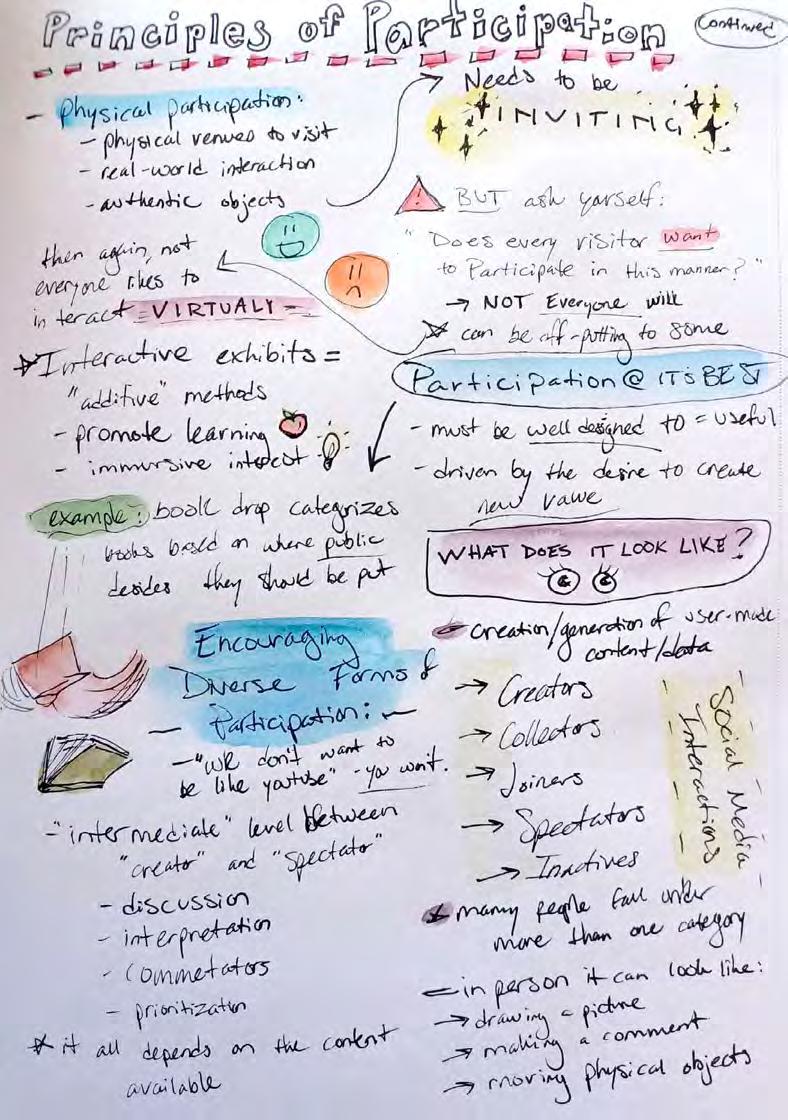 Principles of Participation
Continued
- Physical participation:
- physical venues to visit
- real-world interaction
- authentic objects
Needs to be
INVITING
! BUT ask yarself:
"Does every visitor want
to Participate in this manner?"
→ NOT Everyone will
can be off-putting to some
then again, not
everyone likes to
interact = VIRTUALY -
Interactive exhibits =
"additive" methods
- promote learning
- immursive interest
example: book drop categrizes
books based on where public
desides they should be put
Participation @ ITS BEST
- must be well designed to = useful
- driven by the desire to create
new value
WHAT DOES IT LOOK LIKE?
creation/generation of user-made
content/data
→ Creators
→ Collectors
→ Joiners
→ Spectators
→ Inactives
Social Media
Interactions
many people fall under
more than one category
- in person it can look like:
→ drawing a picture
→ making a comment
→ moving physical objects
Encouraging
Diverse Forms of
- Participation: -
- "We don't want to
be like youtube" - you won't.
- "intermediate" level between
"creator" and "spectator"
- discussion
- interpretation
- commetators
- prioritization
* it all depends on the content
available